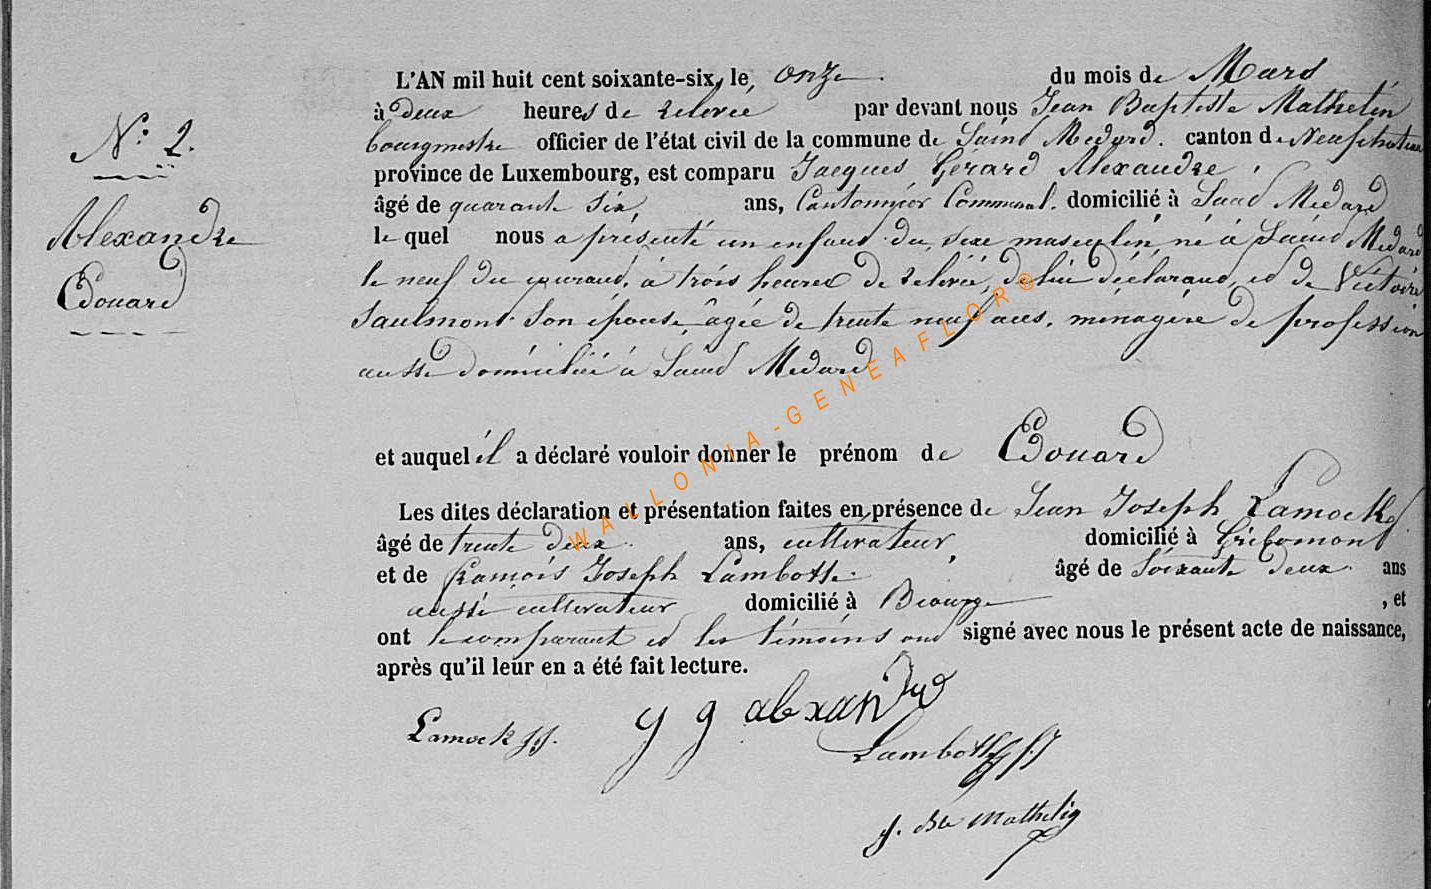 N° 2.
Alexandre
Edouard
L'AN mil huit cent soixante-six, le, onze du mois de Mars
à deux heures de relevée par devant nous Jean Baptiste Mathelin
bourgmestre officier de l'état civil de la commune de Saint Medard. canton de Neufchateau
province de Luxembourg, est comparu Jacques Gérard Alexandre,
âgé de quarante six, ans, Cantonnier Communal. domicilié à Saint Médard
le quel nous a présenté un enfant du sexe masculin né à Saint Médard
le neuf du courant, à trois heures de relevée, de lui déclarant, et de Victoire
Saulmont son épouse, âgée de trente neuf ans, ménagère de profession
aussi domiciliée à Saint Médard
et auquel il a déclaré vouloir donner le prénom de Edouard
Les dites déclaration et présentation faites en présence de Jean Joseph Lamock
âgé de trente deux ans, cultivateur, domicilié à Gribomont
et de François Joseph Lambotte âgé de Soixante deux ans
aussi cultivateur domicilié à Biourge , et
ont le comparant et les témoins ont signé avec nous le présent acte de naissance,
après qu'il leur en a été fait lecture.
Lamock JJ. g g alexandre
Lambotte f. J
J. Bte Mathelin
WALLONIA-GENEAFLOR©